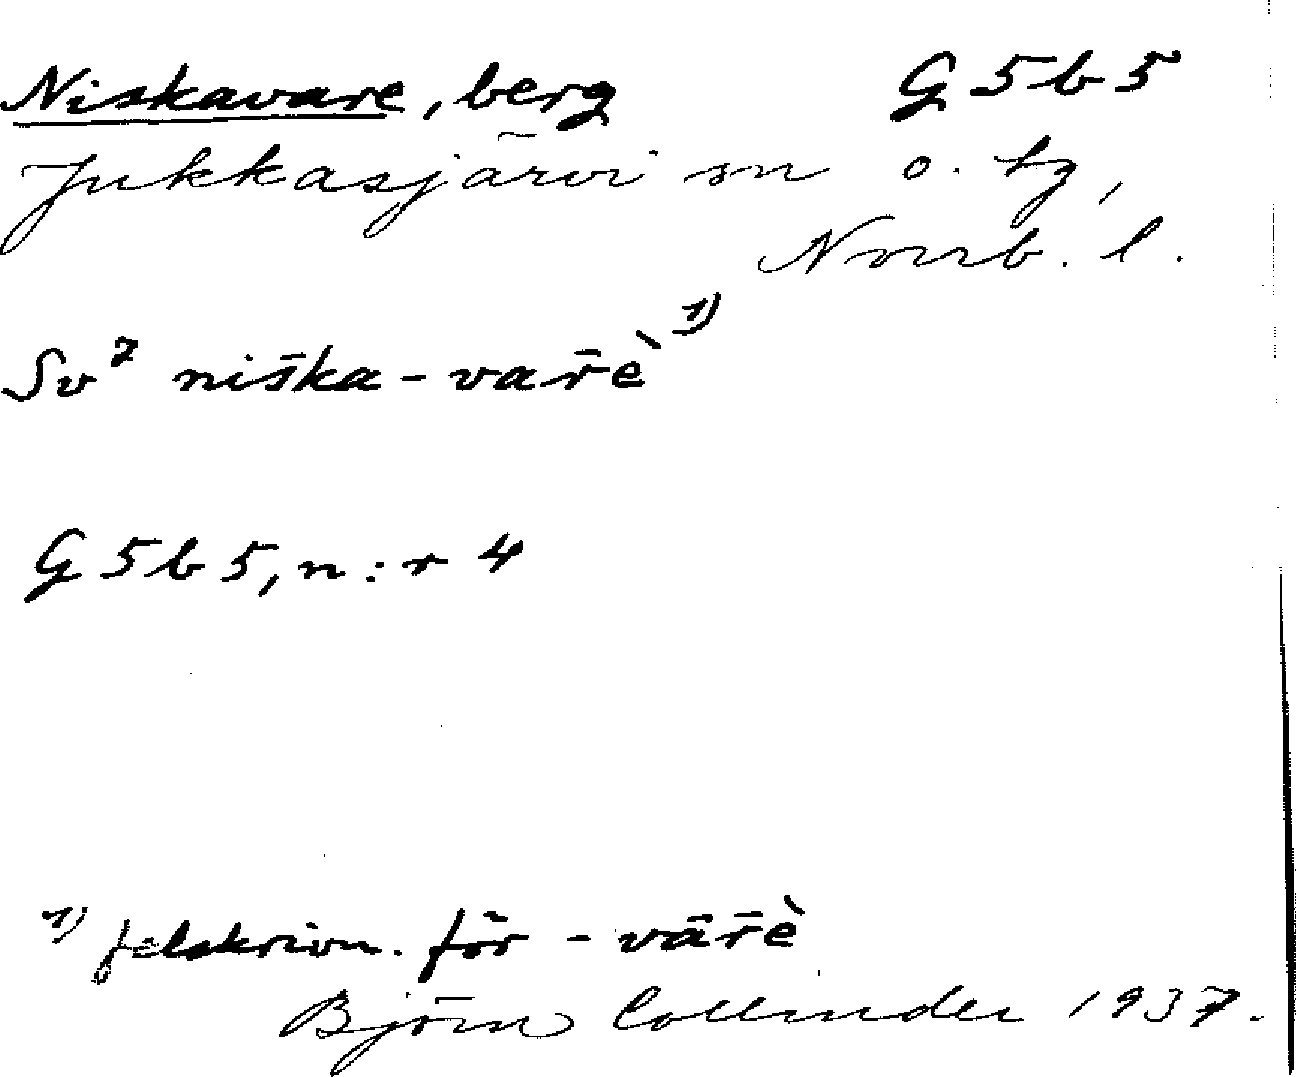 Niskavare, berg G 5 b 5
Jukkasjärvi sn o. tg,
Norrb. l.
Sv² nis̄ka-var̄è ¹⁾
G 5 b 5, n:r 4
¹⁾ felskrivn. för -vār̄è
Björn Collinder 1937.